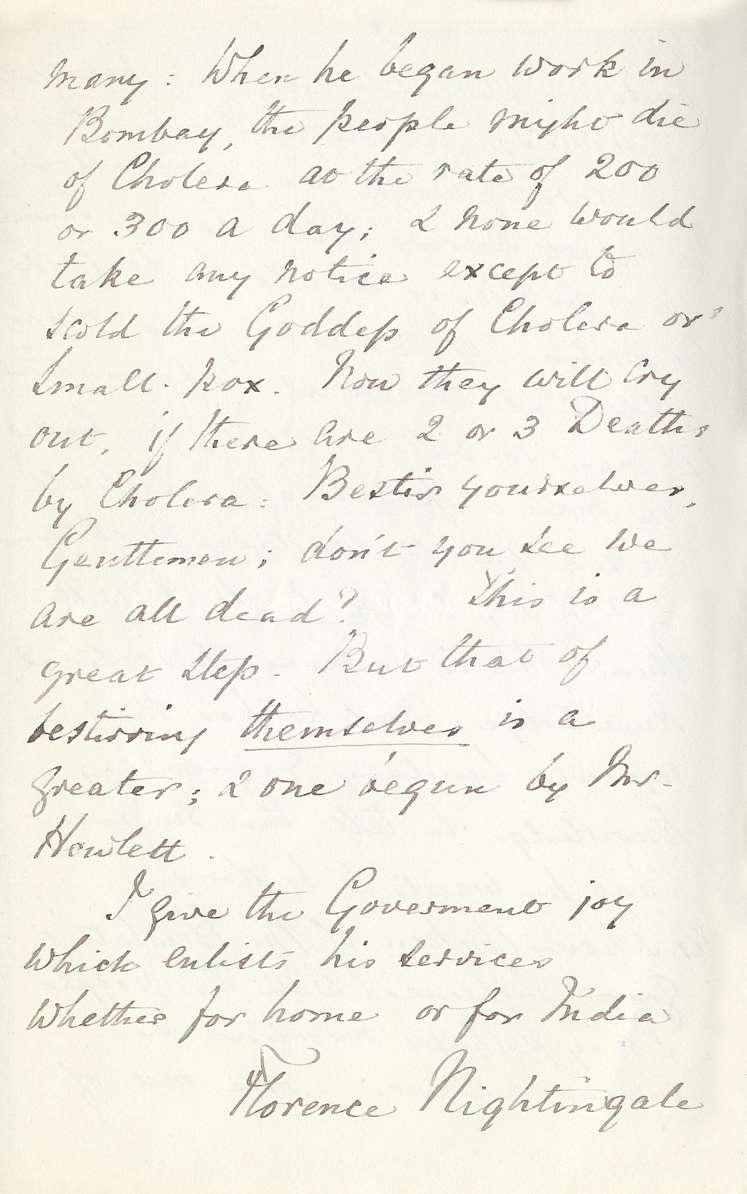 many: When he began work in
Bombay, the people might die
of Cholera at the rate of 200
or 300 a day; & none would
take any notice except to
scold the Goddess of Cholera or
Small-pox. Now they will cry
out, if there are 2 or 3 Deaths
by Cholera: Bestir yourselves,
Gentlemen; don't you see we
are all dead? This is a
great step. But that of
bestirring themselves is a
greater; & one begun by Mr.
Hewlett.
I give the Goverment joy
which enlists his services
whether for home or for India
Florence Nightingale